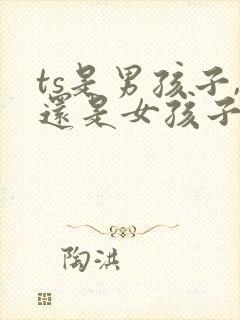 ts是男孩子,
還是女孩子
陶洪